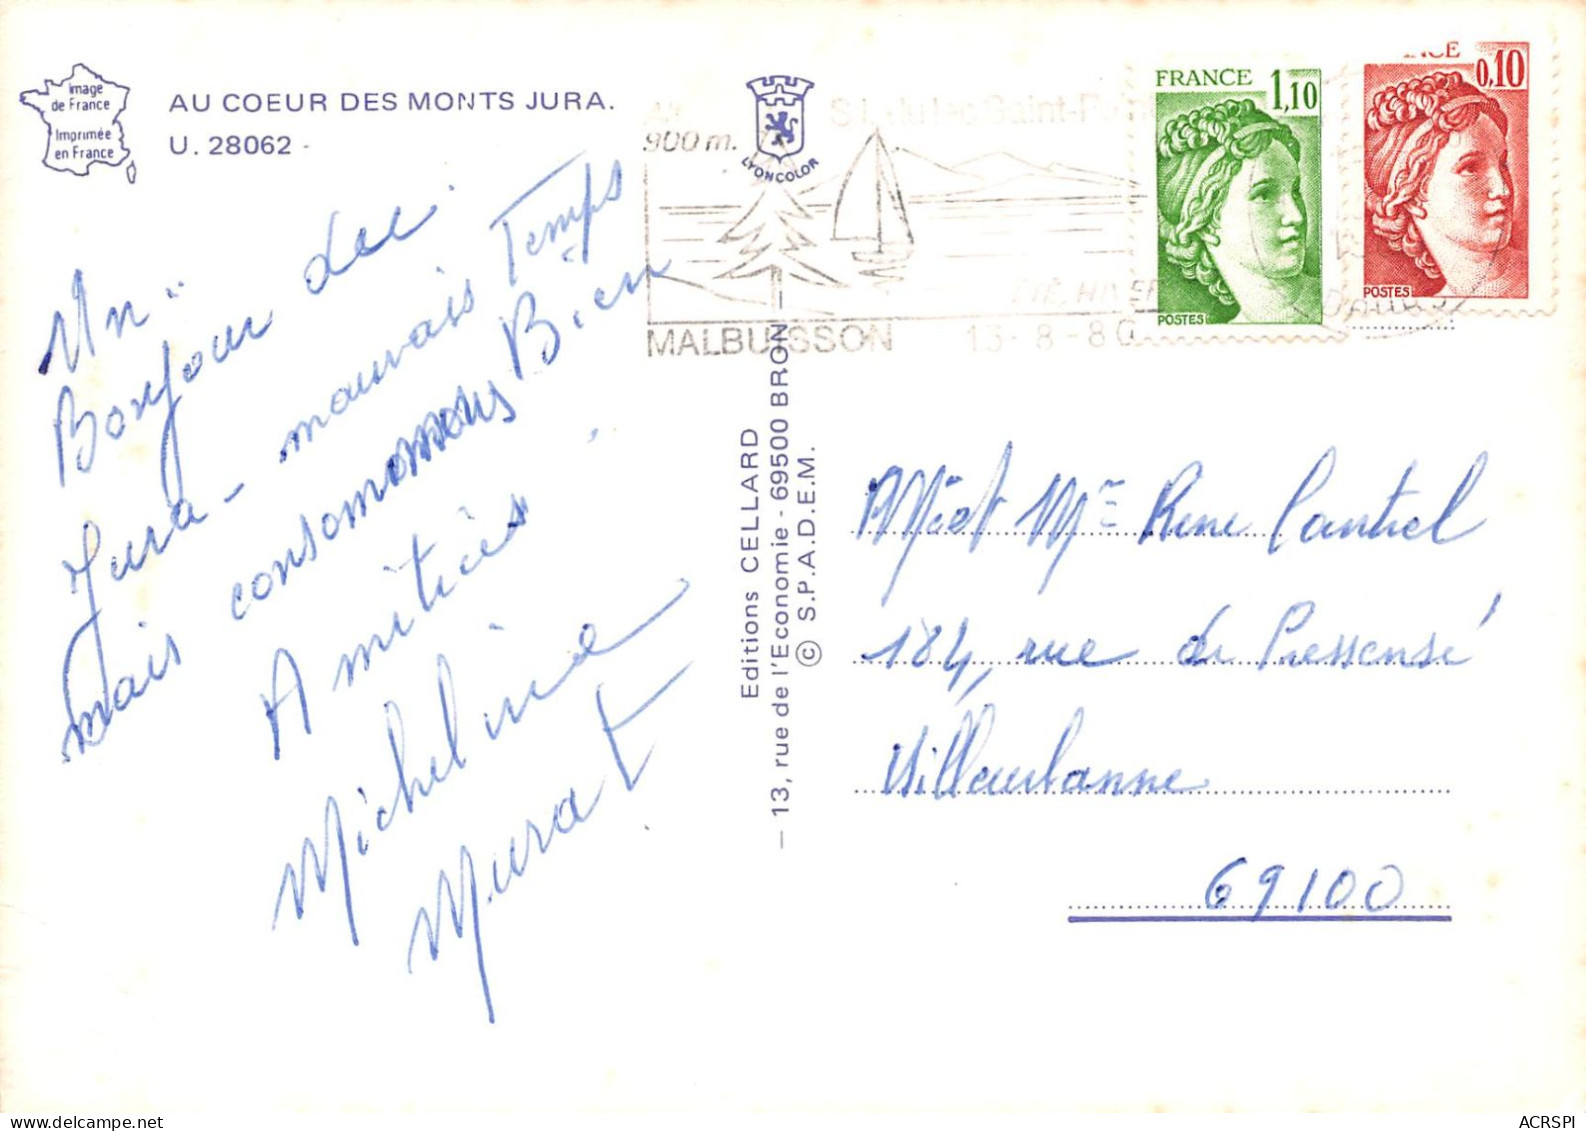 image
de France
Imprimée
en France
AU COEUR DES MONTS JURA.
U. 28062
LYONCOLOR
Alt.
900 m.
S.I. du lac Saint-Point
ÉTÉ, HIVER
MALBUISSON 13-8-80
FRANCE 1,10
POSTES
0,10
POSTES
Un
Bonjour du
Jura - mauvais Temps
mais consommons Bien
Amitiés
Micheline
Murat
Editions CELLARD
— 13, rue de l'Economie - 69500 BRON —
© S.P.A.D.E.M.
Mr et Mme Rene Cantrel
184, rue de Pressensé
Villeurbanne
69100
ACRSPI